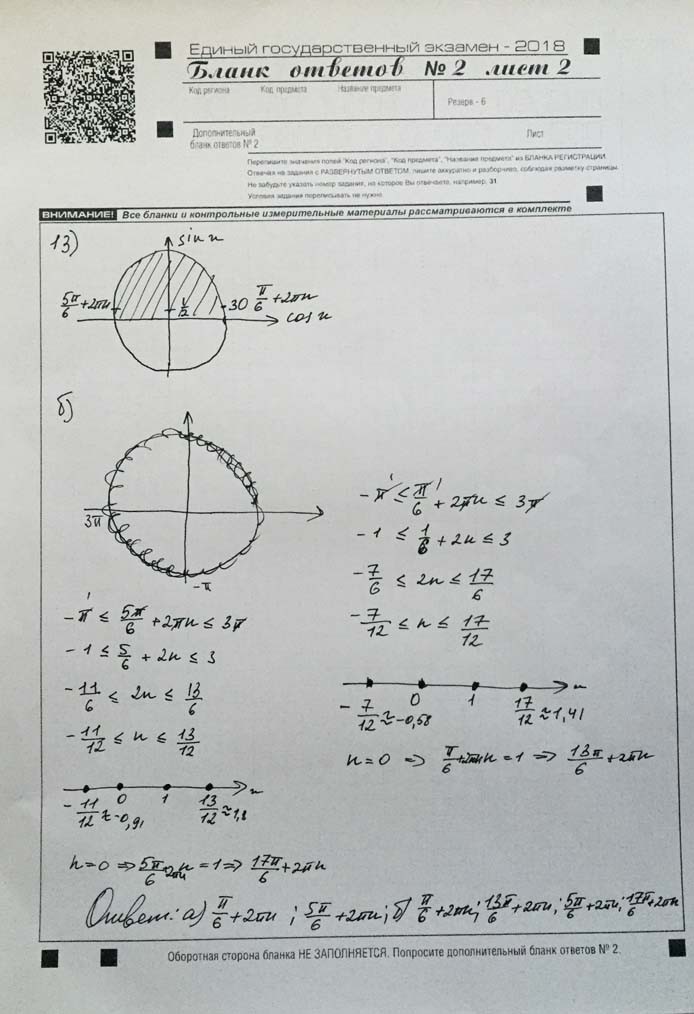 Единый государственный экзамен - 2018
Бланк ответов № 2 лист 2
Код региона Код предмета Название предмета
Резерв - 6
Дополнительный
бланк ответов № 2
Лист
Перепишите значения полей "Код региона", "Код предмета", "Название предмета" из БЛАНКА РЕГИСТРАЦИИ.
Отвечая на задания с РАЗВЕРНУТЫМ ОТВЕТОМ, пишите аккуратно и разборчиво, соблюдая разметку страницы.
Не забудьте указать номер задания, на которое Вы отвечаете, например, 31
Условия задания переписывать не нужно.
ВНИМАНИЕ! Все бланки и контрольные измерительные материалы рассматриваются в комплекте
13)
sin x
5π/6 + 2πn
30 π/6 + 2πn
cos x
б)
3π
-π
-π ≤ π/6 + 2πn ≤ 3π
-1 ≤ 1/6 + 2n ≤ 3
-7/6 ≤ 2n ≤ 17/6
-7/12 ≤ n ≤ 17/12
-7/12 ≈ -0,58 0 1 17/12 ≈ 1,41
n=0 => π/6 + 2πn n=1 => 13π/6 + 2πn
-π ≤ 5π/6 + 2πn ≤ 3π
-1 ≤ 5/6 + 2n ≤ 3
-11/6 ≤ 2n ≤ 13/6
-11/12 ≤ n ≤ 13/12
-11/12 ≈ -0,91 0 1 13/12 ≈ 1,8
n=0 => 5π/6 + 2πn n=1 => 17π/6 + 2πn
Ответ: а) π/6 + 2πn ; 5π/6 + 2πn ; б) π/6 + 2πn ; 13π/6 + 2πn ; 5π/6 + 2πn ; 17π/6 + 2πn
Оборотная сторона бланка НЕ ЗАПОЛНЯЕТСЯ. Попросите дополнительный бланк ответов № 2.